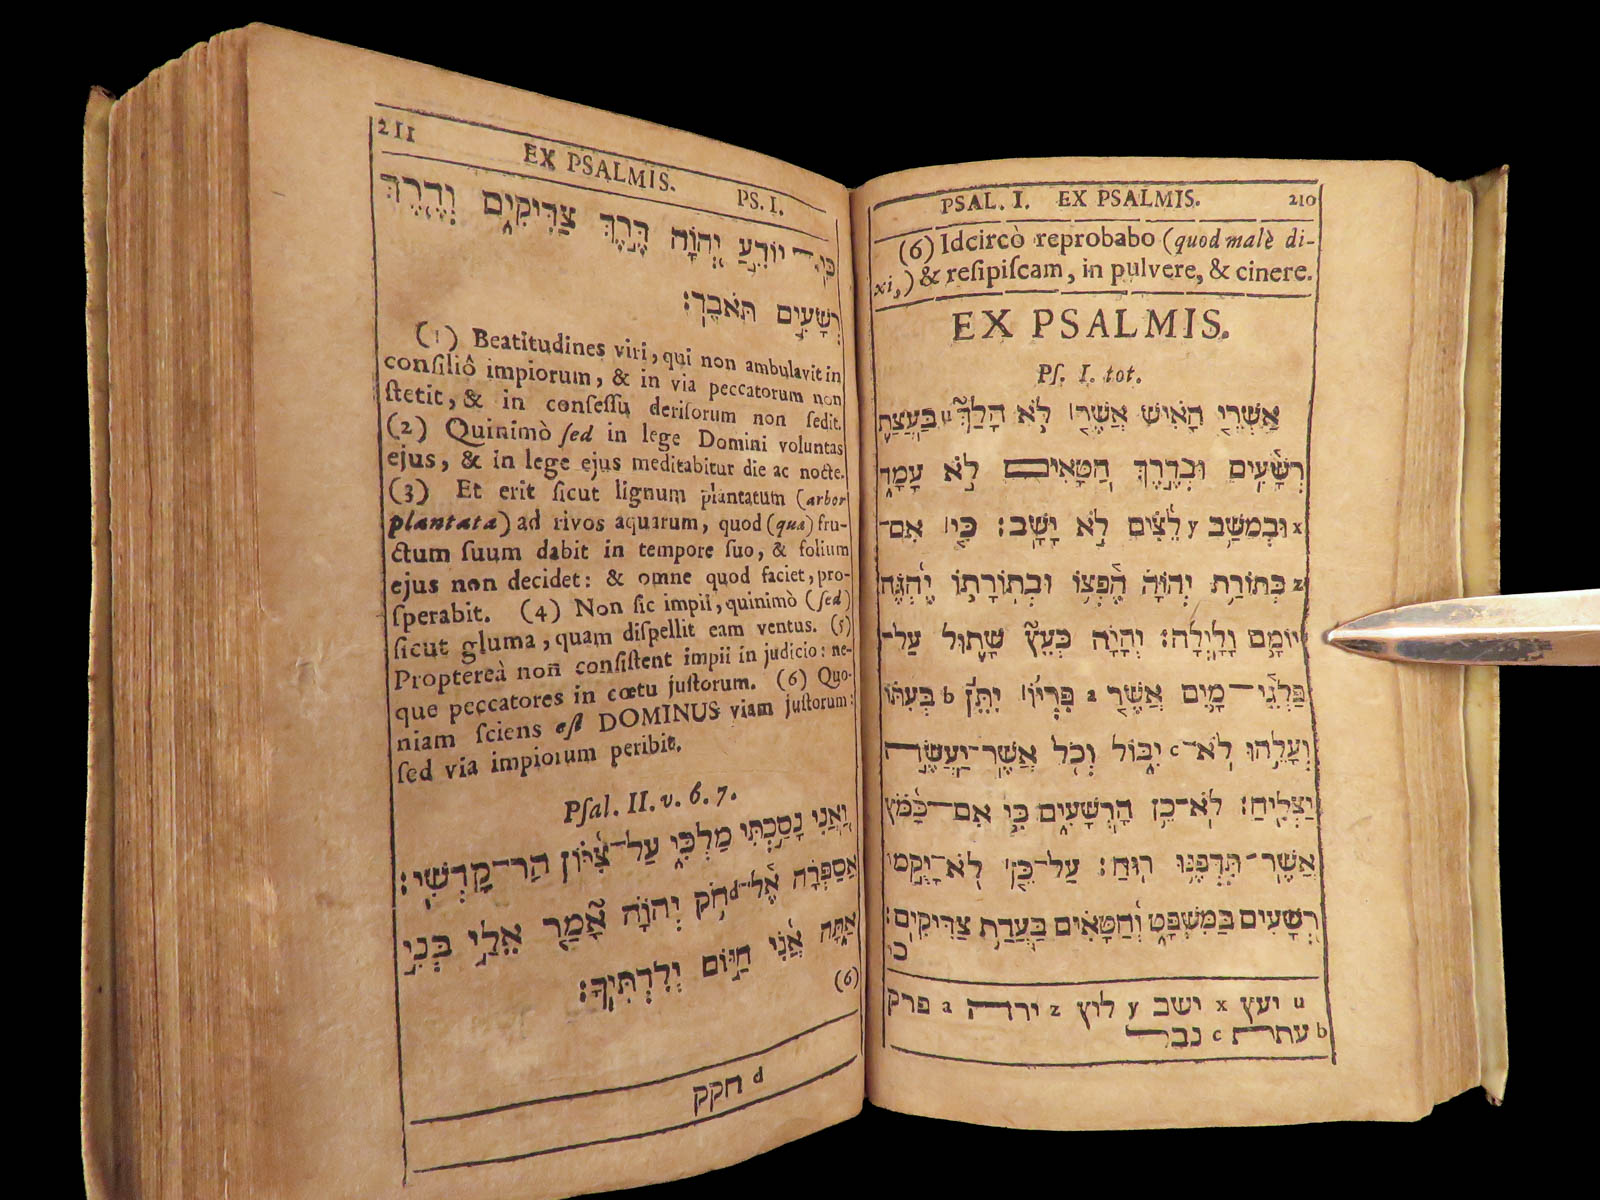 PSAL. I. EX PSALMIS. 210
(6) Idcircò reprobabo (quod malè di-
xi,) & reſipiſcam, in pulvere, & cinere.
EX PSALMIS.
Pſ. I. tot.
אַשְׁרֵי הָאִישׁ אֲשֶׁר לֹא הָלַךְ u בַּעֲצַת
רְשָׁעִים וּבְדֶרֶךְ חַטָּאִים לֹא עָמָד
x וּבְמֹשַׁב y לֵצִים לֹא יָשָׁב׃ כִּי אִם־
z בְּתוֹרַת יְהוָה חֶפְצוֹ וּבְתוֹרָתוֹ יֶהְגֶּה
יוֹמָם וָלָיְלָה׃ וְהָיָה כְּעֵץ שָׁתוּל עַל־
פַּלְגֵי־מָיִם אֲשֶׁר a פִּרְיוֹ יִתֵּן b בְּעִתּוֹ
וְעָלֵהוּ לֹא־c יִבּוֹל וְכֹל אֲשֶׁר־יַעֲשֶׂה
יַצְלִיחַ׃ לֹא־כֵן הָרְשָׁעִים כִּי אִם־כַּמֹּץ
אֲשֶׁר־תִּדְּפֶנּוּ רוּחַ׃ עַל־כֵּן לֹא־יָקֻמוּ
רְשָׁעִים בַּמִּשְׁפָּט וְחַטָּאִים בַּעֲדַת צַדִּיקִים׃
כי
u יעץ x ישב y לוץ z ירה a פרק
b עתה c נבל
211 EX PSALMIS. PS. I.
כִּי־יוֹדֵעַ יְהוָה דֶּרֶךְ צַדִּיקִים וְדֶרֶךְ
רְשָׁעִים תֹּאבֵד׃
(1) Beatitudines viri, qui non ambulavit in
conſiliô impiorum, & in via peccatorum non
ſtetit, & in conſeſſu deriſorum non ſedit.
(2) Quinimò ſed in lege Domini voluntas
ejus, & in lege ejus meditabitur die ac nocte.
(3) Et erit ſicut lignum plantatum (arbor
plantata) ad rivos aquarum, quod (qua) fru-
ctum ſuum dabit in tempore ſuo, & folium
ejus non decidet: & omne quod faciet, pro-
ſperabit. (4) Non ſic impii, quinimò (ſed)
ſicut gluma, quam diſpellit eam ventus. (5)
Proptereà non conſiſtent impii in judicio: ne-
que peccatores in cœtu juſtorum. (6) Quo-
niam ſciens eſt DOMINUS viam juſtorum:
ſed via impiorum peribit.
Pſal. II. v. 6. 7.
וַאֲנִי נָסַכְתִּי מַלְכִּי עַל־צִיּוֹן הַר־קָדְשִׁי׃
אֲסַפְּרָה אֶל־d חֹק יְהוָה אָמַר אֵלַי בְּנִי
אַתָּה אֲנִי הַיּוֹם יְלִדְתִּיךָ׃
(6)
d חקק